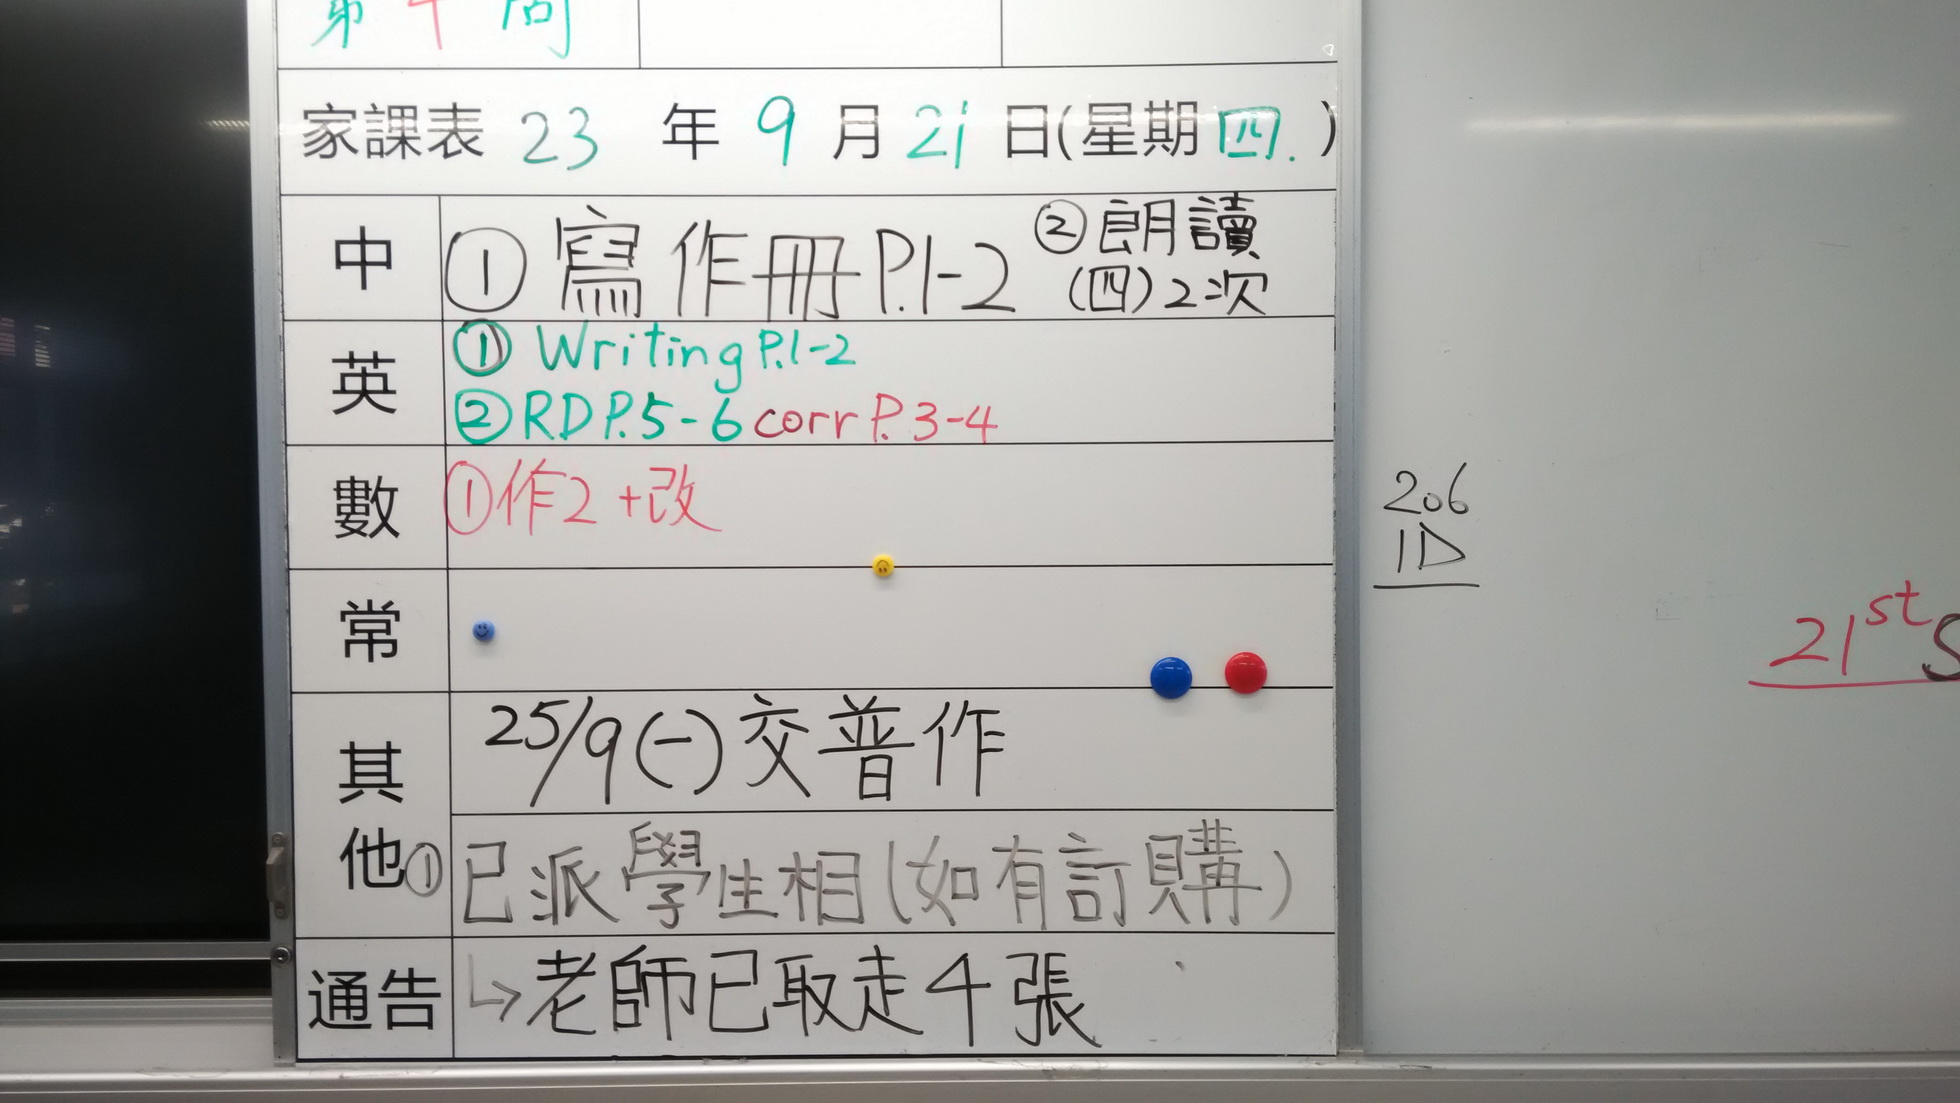 第 4 周
家課表 23 年 9 月 21 日(星期四.)
中 ① 寫作冊 P.1-2 ② 朗讀
(四) 2次
英 ① Writing P.1-2
② RD P.5-6 corr P.3-4
數 ① 作2 +改
常
其他
25/9 (一) 交普作
① 已派學生相 (如有訂購)
通告 ↳ 老師已取走4張
206
1D
21st S